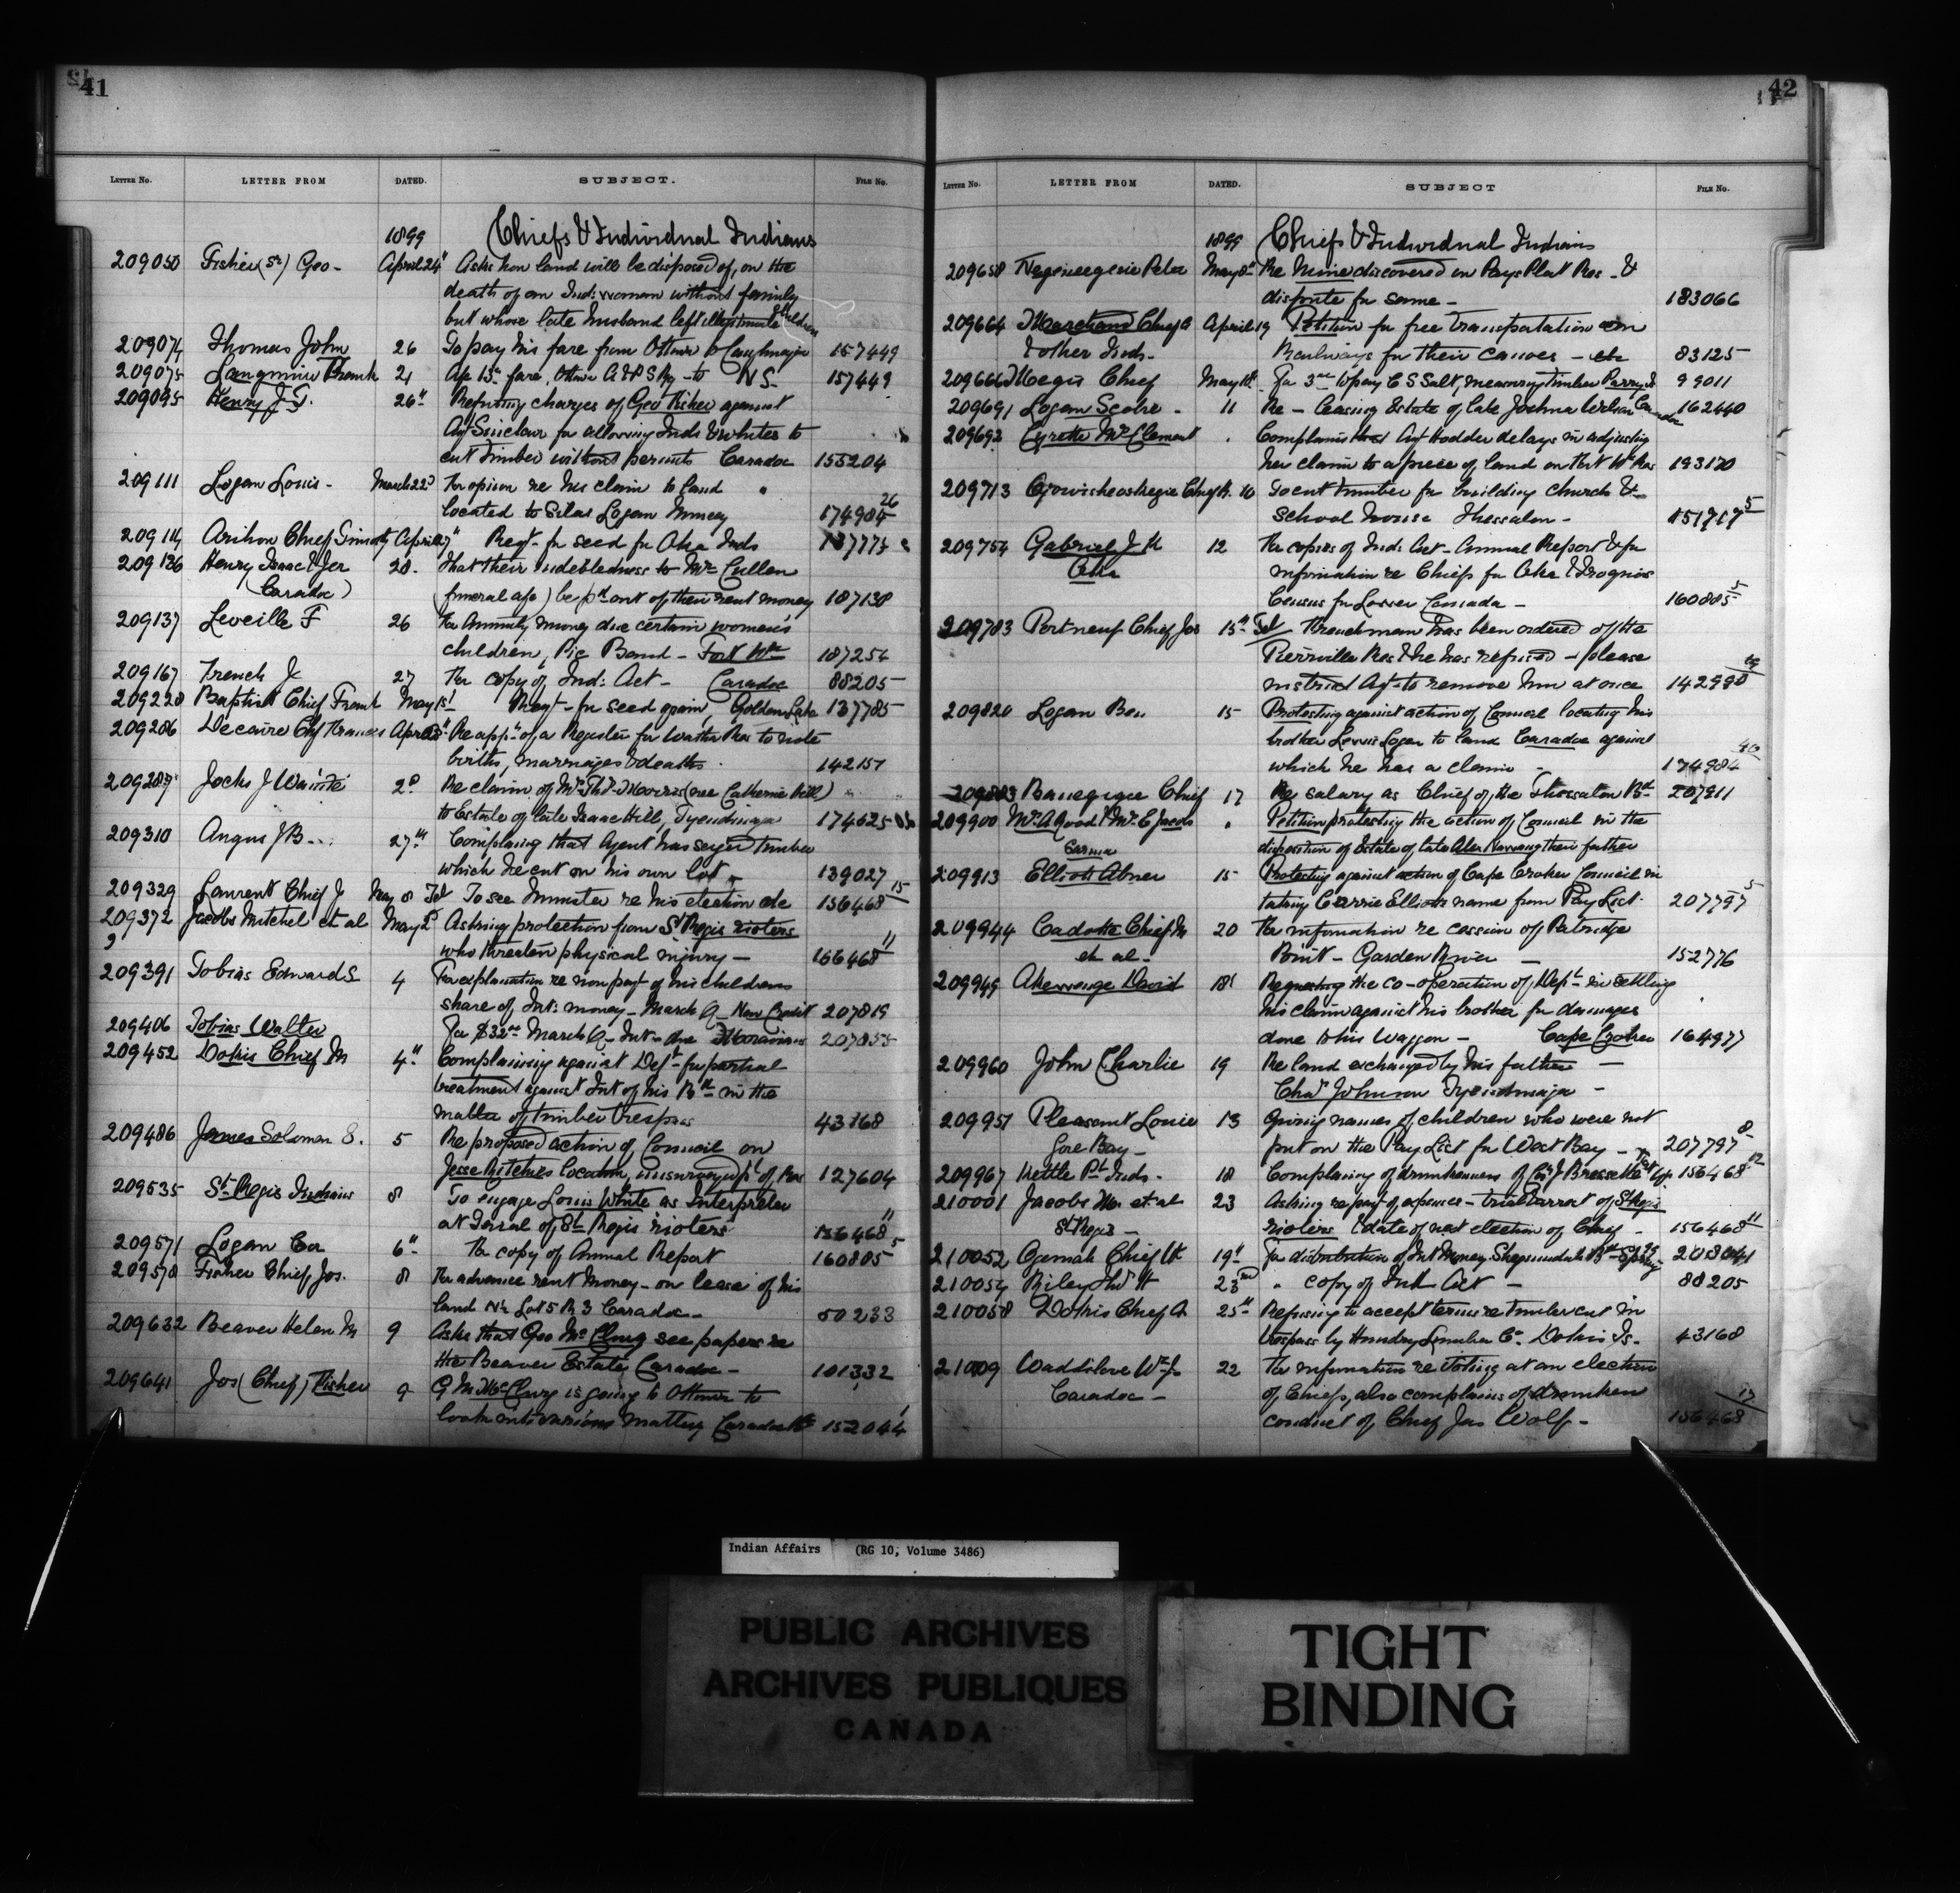 41
LETTER No. LETTER FROM DATED. SUBJECT. FILE No.
1899 Chiefs & Individual Indians
209050 Fisher (Sr) Geo - April 24" Asks how land will be disposed of, on the
death of an Ind: woman without family
but whose late husband left illegitimate children
209074 Thomas John 26 To pay his fare from Ottawa to Caughnawaga 157449
209075 Frank 21 fare, Ottawa A & P S Ry - to N S - 157449
209095 Henry J. T. 26" Refuting charges of Geo Fisher against
Agt Sinclair for allowing Inds & whites to
cut timber without permits Caradoc 155204
209111 Logan Louis - March 22d For opinion re his claim to land
located to Silas Logan Muncey 174984 26
209114 Arihon Chief Timothy April 27" Reqt - for seed for Oka Inds
209126 Henry Isaac & Jer 28. That their indebtedness to Mr Cullen
(Caradoc) (funeral a/c) be pd out of their rent money 187138
209137 Leveille F 26 For Annuity money due certain women's
children, Pic Band - Fort Wm 187254
209167 French J 27 For copy of Ind: Act - Caradoc 88205
209220 Baptist Chief Frank May 1st Reqt - for seed grain, Golden Lake 137785
209286 Decaire Chf Francis April Re appn of a Register for Watha Res to note
births, marriages & deaths. 142157
209287 Jocks J Wainte 2d Re claim of Mrs Thos Morris (nee Catherine Hill)
to Estate of late Isaac Hill, Tyendinaga 174625
209310 Angus J B 27th Complaining that Agent has seized timber
which he cut on his own lot - 139027
209329 Laurent Chief J May 8 Tel To see Minister re his election etc 156468 15
209372 Jacobs Mitchel et al May 2d Asking protection from St Regis rioters
who threaten physical injury - 156468 11
209391 Tobias Edward S 4 For explanation re non payt of his childrens
share of Int: money - March Q - New Credit 207819
209406 Tobias Walter For $32 March Q - Int - due Moravians 207855
209452 Dokis Chief M 4" Complaining against Dept - for partial
treatment against Int of his Bd in the
matter of timber trespass 43168
209486 James Solomon S. 5 Re proposed action of Council on
Jesse Ritchies location, unsurveyed pt of Res 127604
209535 St Regis Indians 8 To engage Louis White as Interpreter
at Trial of St Regis rioters 156468 11
209571 Logan Ca 6" For copy of Annual Report 160885 5
209570 Fisher Chief Jos. 8 For advance rent money - on lease of his
land N½ Lot 5 R 3 Caradoc - 50233
209632 Beaver Helen M 9 Asks that Geo McClurg see papers re
the Beaver Estate Caradoc - 101332
209641 Jos (Chief) Fisher 9 G M McClurg is going to Ottawa to
look into various matters Caradoc 152044
42
LETTER No. LETTER FROM DATED. SUBJECT FILE No.
1899 Chiefs & Individual Indians
209658 Peter May 8" Re Mine discovered on Pays Plat Res - &
dispute for same - 183066
209664 Marchand Chief A April 19 Petition for free transportation on
& other Inds - Railways for their canoes - etc 83125
Megis Chief May For to pay C S Salt, measuring timber Parry I 99011
209691 Logan Scobie - 11 Re - leasing Estate of late Joshua Wilson Caradoc 162440
209692 Cyrette Mrs Clement Complains that Agt Hodder delays in adjusting
her claim to a piece of land on Fort Wm Res 193170
209713 Chief 10 To cut timber for building church &
School house Thessalon - 151717 5
209754 Gabriel J K 12 For copies of Ind: Act - Annual Report & for
Oka information re Chiefs for Oka & Iroquois
Census for Lower Canada - 160885 5
209783 Portneuf Chief Jos 15" Tel Frenchman has been ordered off the
Pierrville Res & he has refused - please
instruct Agt to remove him at once 142990
209820 Logan Ben 15 Protesting against action of Council locating his
brother Lewis Logan to land Caradoc against
which he has a claim - 174984
209883 Chief 17 Re salary as Chief of the Thessalon Bd 207911
209900 Mrs A Wood & Mrs E Jacobs Petition protesting the action of Council in the
Sarnia disposition of Estate of late Alex their father
209913 Elliott Abner 15 Protesting against action of Cape Croker Council in
taking Carrie Elliotts name from Pay List. 207797 5
209944 Cadotte Chief M 20 For information re cession of Partridge
et al - Point - Garden River - 152776
209949 Akewenze David 18" Requesting the co-operation of Dept in settling
his claim against his brother for damages
done to his waggon - Cape Croker 164977
209960 John Charlie 19 Re land exchanged by his father -
Chas Johnson Tyendinaga -
209951 Pleasant Louie 13 Giving names of children who were not
Gore Bay - put on the Pay List for West Bay - 207797 8
209967 Kettle Pt Inds. 18 Complaining of drunkenness of J Bressette 156468
210001 Jacobs et al 23 Asking re payt of expenses - trial & arrest of St Regis
St Regis - rioters & date of next election of Chief - 156468 11
210052 Ogemah Chief W 19" For distribution of Int Money Sheguiandah Bd 208041
210054 Riley Thos H 23rd " copy of Ind Act - 88205
210058 Dokis Chief A 25" Refusing to accept terms re timber cut in
trespass by Hendry Lumber Co. Dokis Is. 43168
Waddilove Wm J 22 For information re voting at an election
Caradoc - of Chiefs, also complains of drunken
conduct of Chief Jas Wolf - 156468 13
Indian Affairs (RG 10, Volume 3486)
PUBLIC ARCHIVES
ARCHIVES PUBLIQUES
CANADA
TIGHT
BINDING